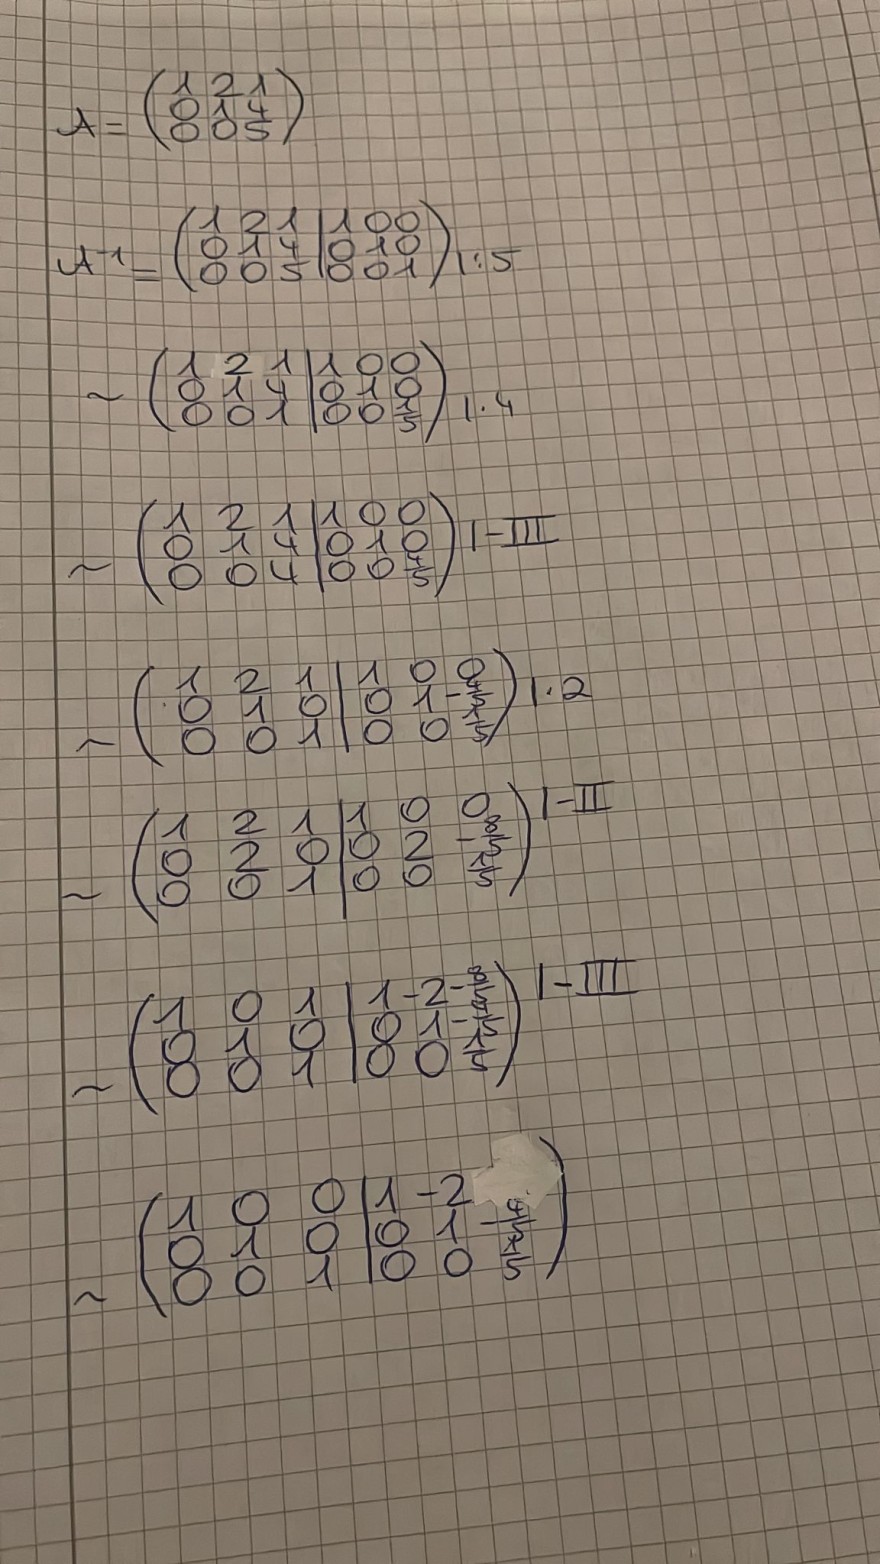 A = (1 2 1
0 1 4
0 0 5)
A⁻¹ = (1 2 1 | 1 0 0
0 1 4 | 0 1 0
0 0 5 | 0 0 1) |:5
~ (1 2 1 | 1 0 0
0 1 4 | 0 1 0
0 0 1 | 0 0 1/5) |·4
~ (1 2 1 | 1 0 0
0 1 4 | 0 1 0 |-III
0 0 4 | 0 0 4/5)
~ (1 2 1 | 1 0 0
0 1 0 | 0 1 -4/5 |·2
0 0 1 | 0 0 1/5)
~ (1 2 1 | 1 0 0 |-II
0 2 0 | 0 2 -8/5
0 0 1 | 0 0 1/5)
~ (1 0 1 | 1 -2 -8/5 |-III
0 1 0 | 0 1 -4/5
0 0 1 | 0 0 1/5)
~ (1 0 0 | 1 -2
0 1 0 | 0 1 -4/5
0 0 1 | 0 0 1/5)